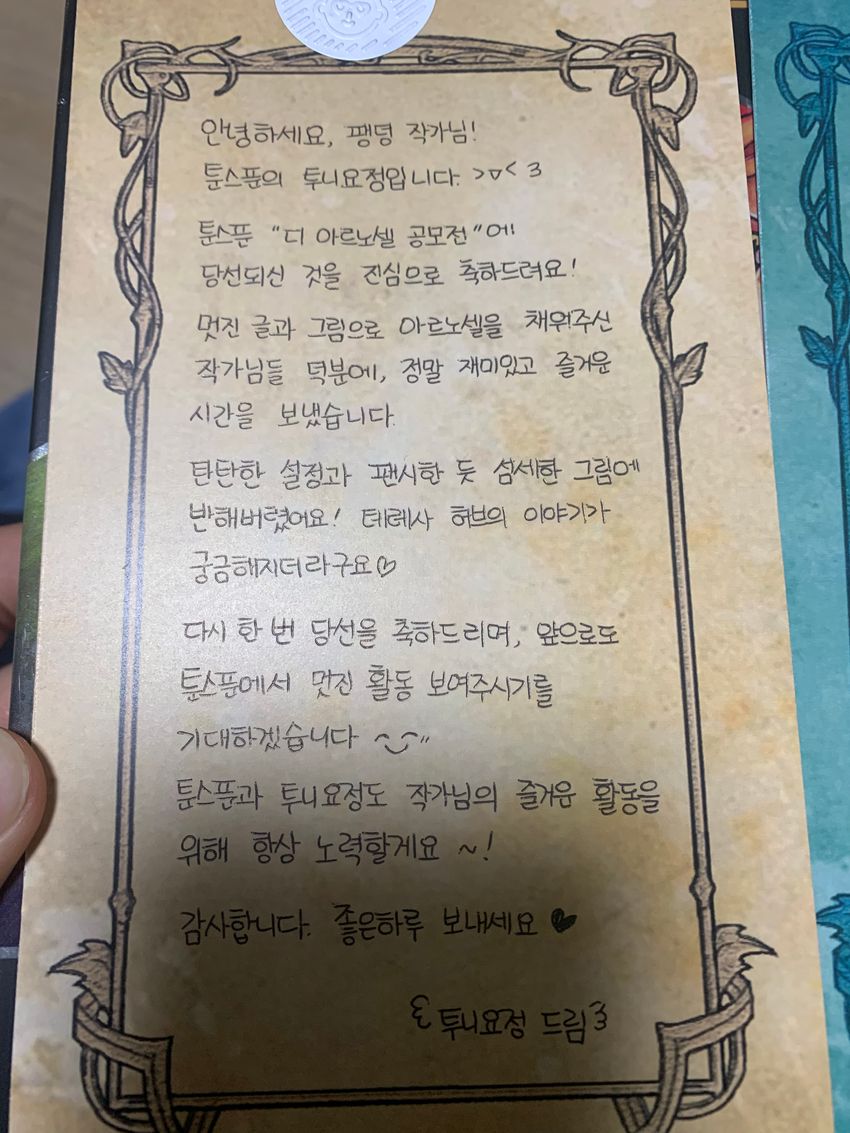 안녕하세요, 팽덩 작가님!
툰스푼의 투니요정입니다. >▽< 3
툰스푼 "디 아르노셀 공모전"에
당선되신 것을 진심으로 축하드려요!
멋진 글과 그림으로 아르노셀을 채워주신
작가님들 덕분에, 정말 재미있고 즐거운
시간을 보냈습니다.
탄탄한 설정과 팬시한 듯 섬세한 그림에
반해버렸어요! 테레사 허브의 이야기가
궁금해지더라구요♡
다시 한 번 당선을 축하드리며, 앞으로도
툰스푼에서 멋진 활동 보여주시기를
기대하겠습니다 ^‿^〃
툰스푼과 투니요정도 작가님의 즐거운 활동을
위해 항상 노력할게요 ~!
감사합니다. 좋은하루 보내세요 ♥
ε투니요정 드림3